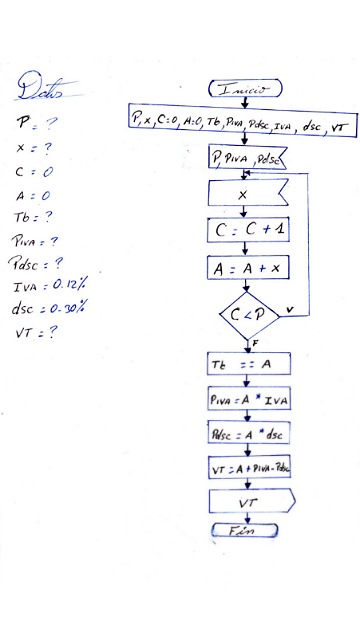 Datos
P = ?
x = ?
C = 0
A = 0
Tb = ?
PIVA = ?
Pdsc = ?
IVA = 0.12%
dsc = 0.30%
VT = ?
Inicio
P, x, C=0, A=0, Tb, PIVA, Pdsc, IVA, dsc, VT
P, PIVA, Pdsc
x
C = C + 1
A = A + x
C < P
V
F
Tb == A
PIVA = A * IVA
Pdsc = A * dsc
VT = A + PIVA - Pdsc
VT
Fin